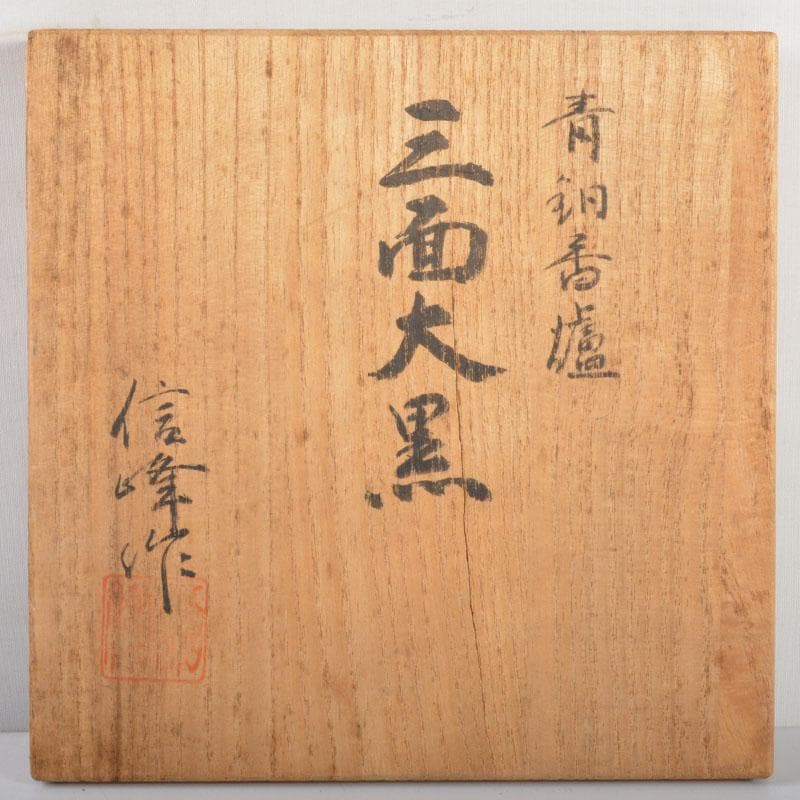 青銅香爐
三面大黒
信峰作